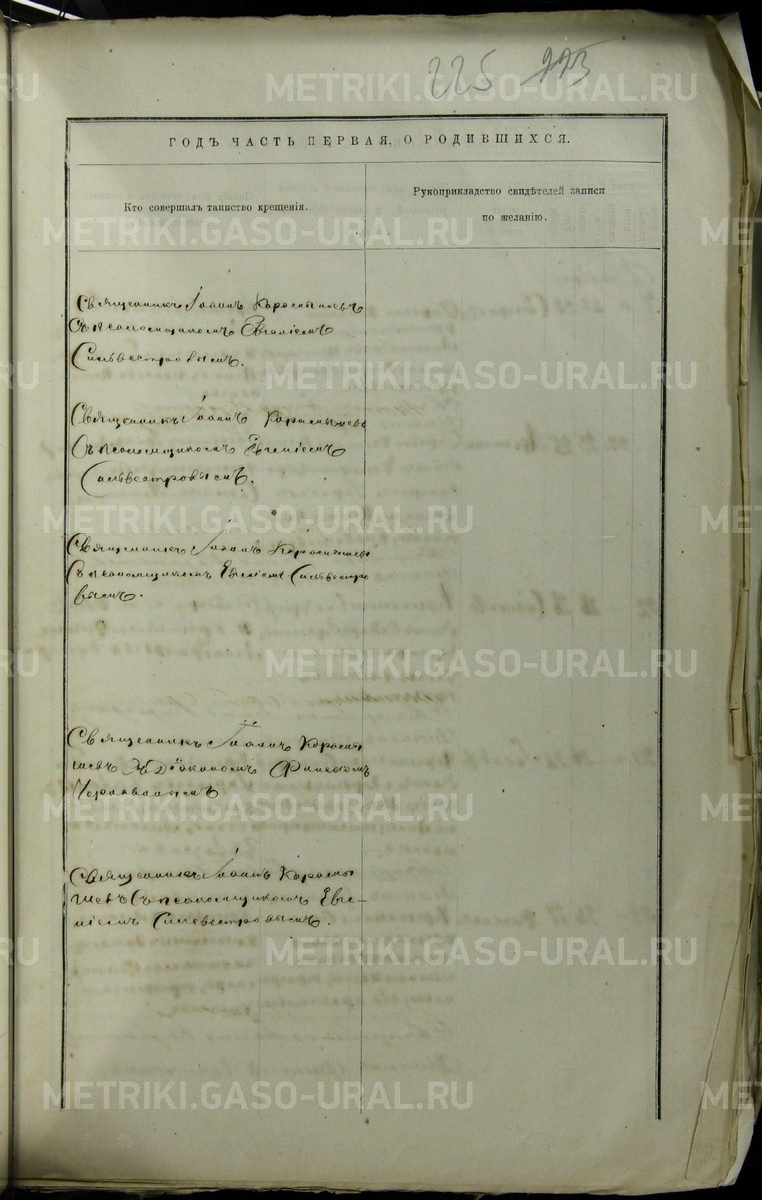 225 223
ГОДЪ ЧАСТЬ ПЕРВАЯ, О РОДИВШИХСЯ.
Кто совершалъ таинство крещенія.
Рукоприкладство свидѣтелей записи
по желанію.
Священникъ Іоаннъ Карамышевъ
Съ псаломщикомъ Евгеніемъ
Сильвестровымъ.
Священникъ Іоаннъ Карамышевъ
Съ псаломщикомъ Евгеніемъ
Сильвестровымъ.
Священникъ Іоаннъ Карамышевъ
Съ псаломщикомъ Евгеніемъ Сильвестро
вымъ.
Священникъ Іоаннъ Карамы
шевъ Діакономъ
Священникъ Іоаннъ Карамы
шевъ Съ псаломщикомъ Евге-
ніемъ Сильвестровымъ.
METRIKI.GASO-URAL.RU